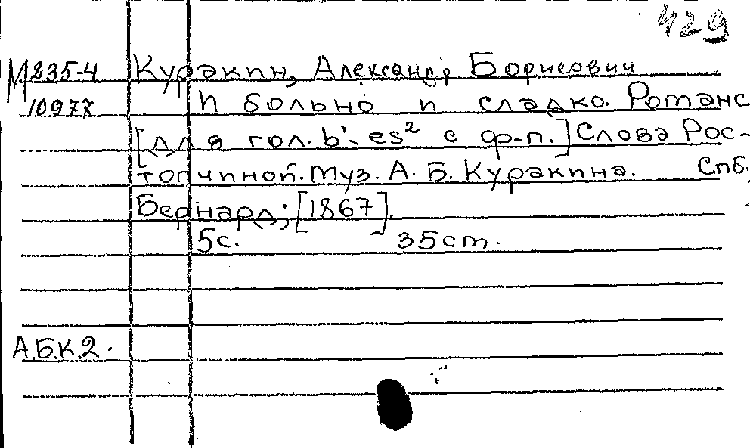 429
М235-4 Куракин, Александр Борисович
10977 И больно и сладко. Романс
[для гол. b¹-es² с ф-п.] Слова Рос-
топчиной. Муз. А. Б. Куракина. Спб.,
Бернард, [1867].
5с. 35 ст.
А.Б.К.2.